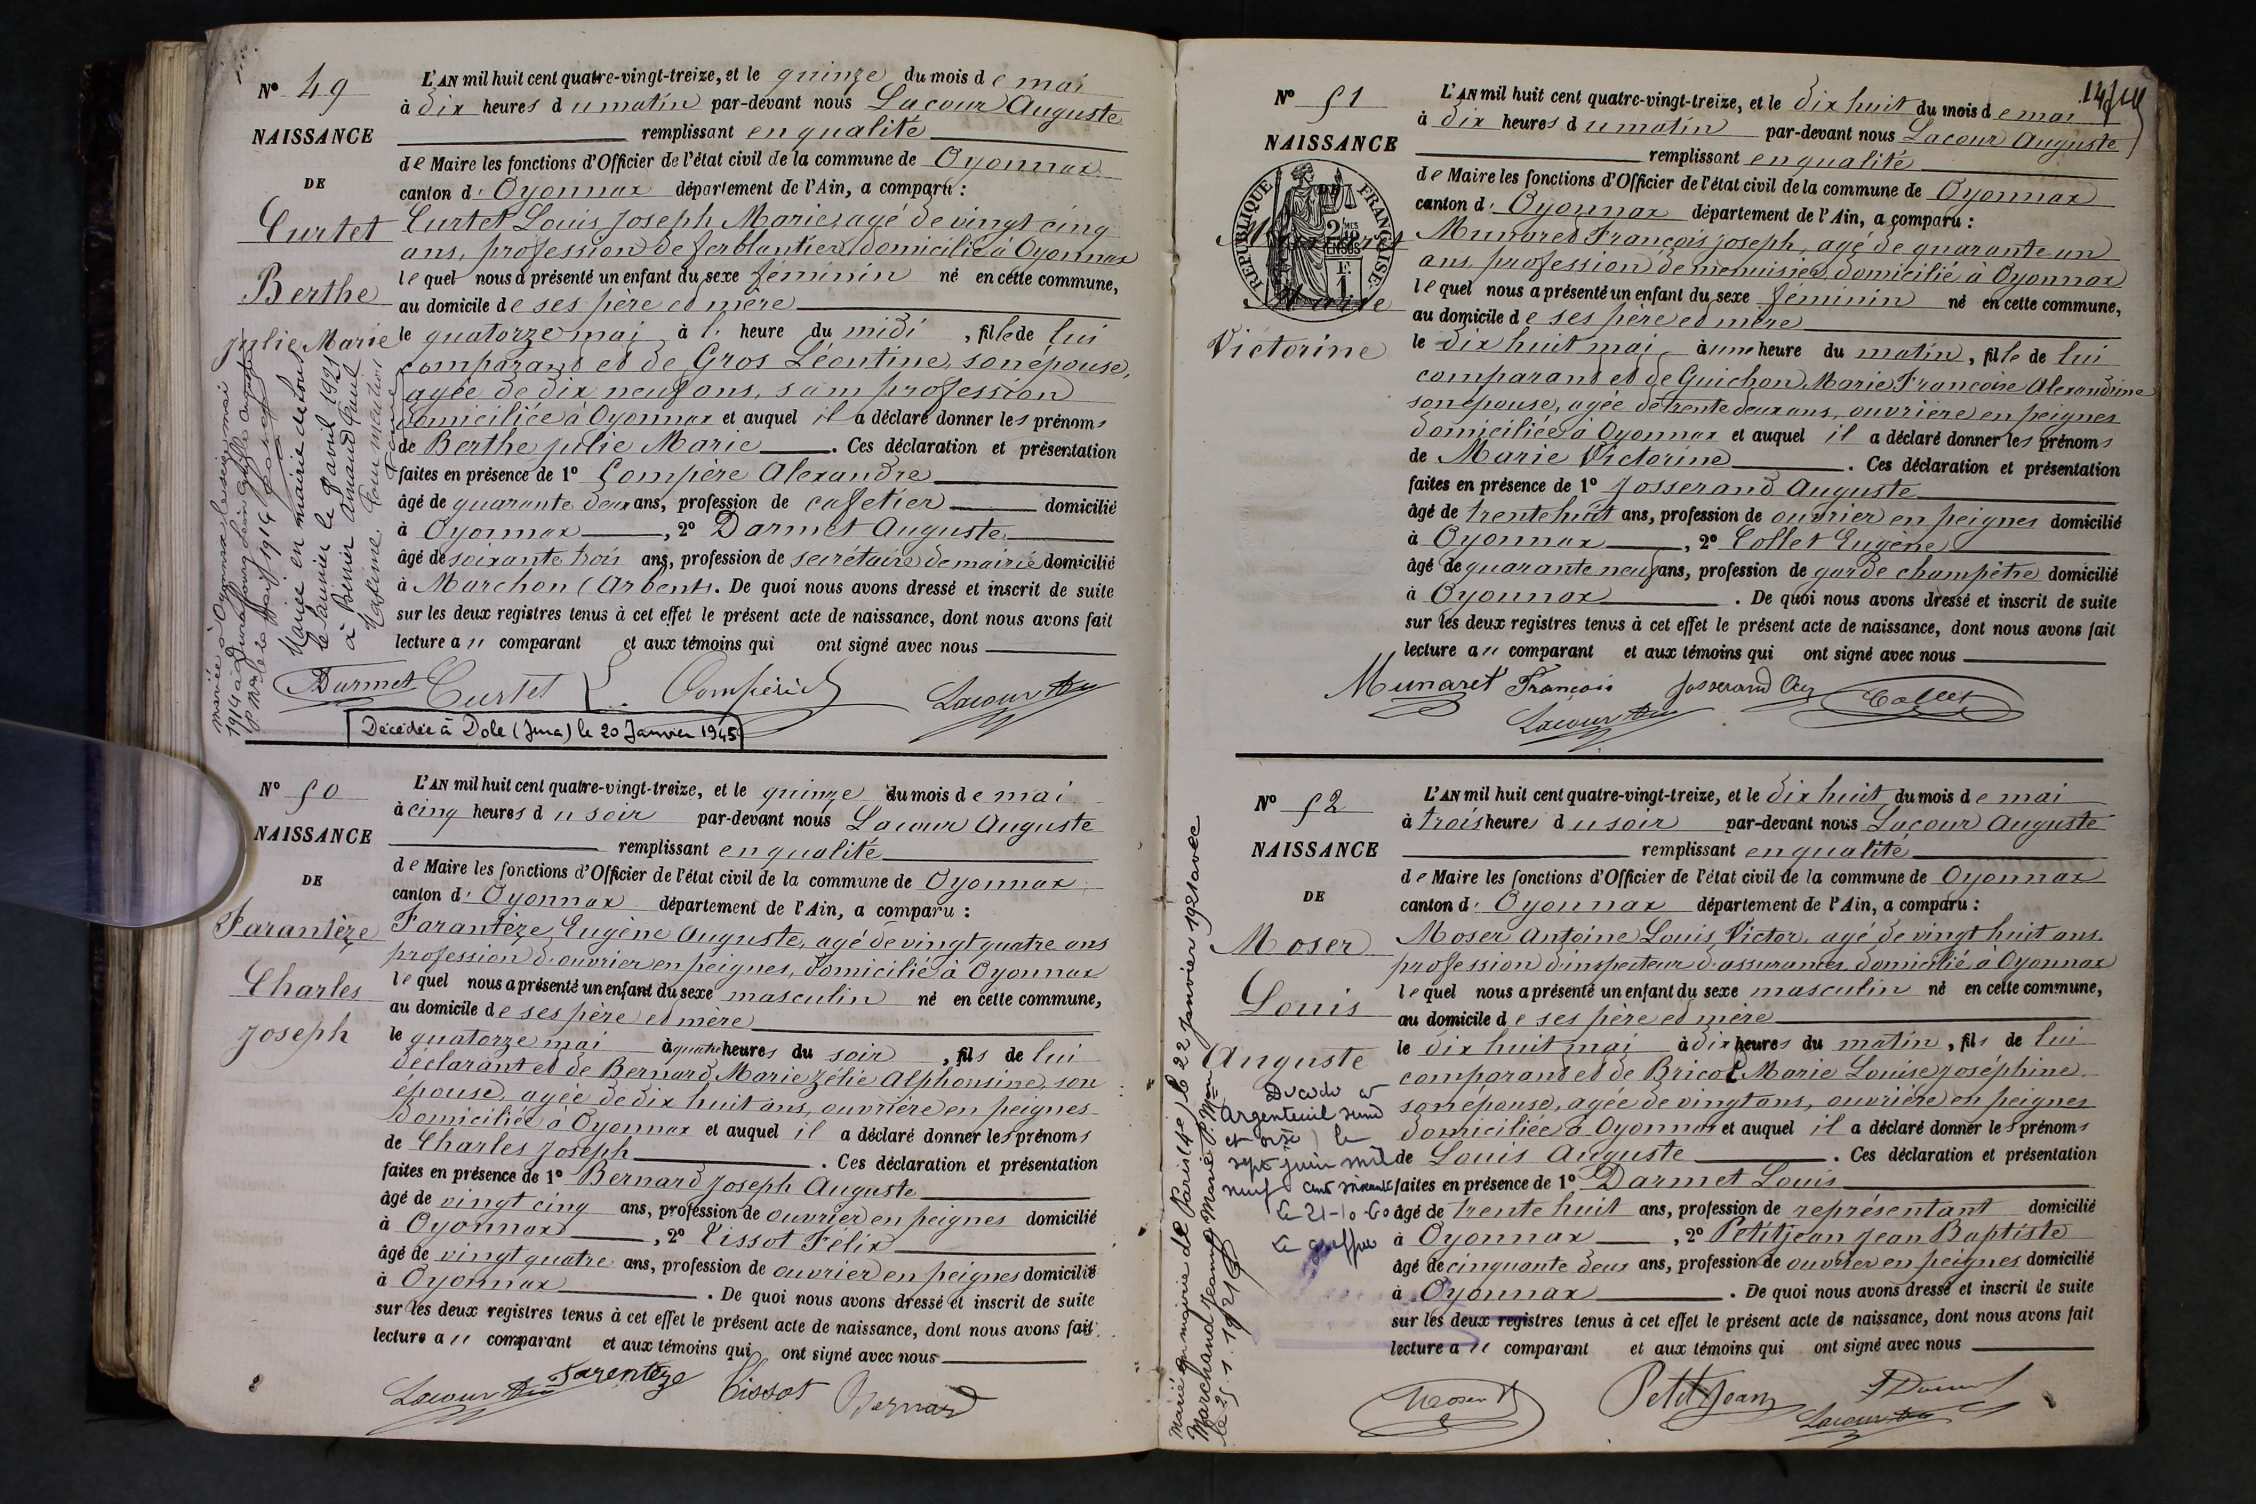 N° 49
NAISSANCE
DE
Curtet
Berthe
Julie Marie
L'AN mil huit cent quatre-vingt-treize, et le quinze du mois de mai
à dix heures du matin par-devant nous Lacour Auguste
remplissant en qualité
de Maire les fonctions d'Officier de l'état civil de la commune de Oyonnax
canton d' Oyonnax département de l'Ain, a comparu :
Curtet Louis Joseph Marie, agé de vingt cinq
ans, profession de ferblantier domicilié à Oyonnax
lequel nous a présenté un enfant du sexe féminin né en cette commune,
au domicile de ses père et mère
le quatorze mai à l' heure du midi, fille de lui
comparant et de Gros Léontine, son épouse,
agée de dix neuf ans, sans profession
domiciliée à Oyonnax et auquel il a déclaré donner les prénoms
de Berthe Julie Marie. Ces déclaration et présentation
faites en présence de 1° Compère Alexandre
âgé de quarante deux ans, profession de cafetier domicilié
à Oyonnax, 2° Darmet Auguste
âgé de soixante trois ans, profession de secrétaire de mairie domicilié
à Marchon (Arbent). De quoi nous avons dressé et inscrit de suite
sur les deux registres tenus à cet effet le présent acte de naissance, dont nous avons fait
lecture au comparant et aux témoins qui ont signé avec nous
Darmet Curtet L. Compère Lacour
mariée à Oyonnax le seize mai
1914 à
Mariée en mairie de
le avril 1921
à Armand
Décédée à Dole (Jura) le 20 Janvier 1945
N° 50
NAISSANCE
DE
Tarantèze
Charles
Joseph
L'AN mil huit cent quatre-vingt-treize, et le quinze du mois de mai
à cinq heures du soir par-devant nous Lacour Auguste
remplissant en qualité
de Maire les fonctions d'Officier de l'état civil de la commune de Oyonnax
canton d' Oyonnax département de l'Ain, a comparu :
Tarantèze Eugène Auguste, agé de vingt quatre ans
profession d'ouvrier en peignes, domicilié à Oyonnax
lequel nous a présenté un enfant du sexe masculin né en cette commune,
au domicile de ses père et mère
le quatorze mai à quatre heures du soir, fils de lui
déclarant et de Bernard Marie Zélie Alphonsine, son
épouse, agée de dix huit ans, ouvrière en peignes
domiciliée à Oyonnax et auquel il a déclaré donner les prénoms
de Charles Joseph. Ces déclaration et présentation
faites en présence de 1° Bernard Joseph Auguste
âgé de vingt cinq ans, profession de ouvrier en peignes domicilié
à Oyonnax, 2° Tissot Félix
âgé de vingt quatre ans, profession de ouvrier en peignes domicilié
à Oyonnax. De quoi nous avons dressé et inscrit de suite
sur les deux registres tenus à cet effet le présent acte de naissance, dont nous avons fait
lecture au comparant et aux témoins qui ont signé avec nous
Lacour Tarentèze Tissot Bernard
N° 51
NAISSANCE
DE
RÉPUBLIQUE FRANÇAISE
Munaret
Marie
Victorine
L'AN mil huit cent quatre-vingt-treize, et le dix huit du mois de mai
à dix heures du matin par-devant nous Lacour Auguste
remplissant en qualité
de Maire les fonctions d'Officier de l'état civil de la commune de Oyonnax
canton d' Oyonnax département de l'Ain, a comparu :
Munaret François Joseph, agé de quarante un
ans, profession de menuisier, domicilié à Oyonnax
lequel nous a présenté un enfant du sexe féminin né en cette commune,
au domicile de ses père et mère
le dix huit mai à une heure du matin, fille de lui
comparant et de Guichon, Marie Françoise Alexandrine
son épouse, agée de trente deux ans, ouvrière en peignes
domiciliée à Oyonnax et auquel il a déclaré donner les prénoms
de Marie Victorine. Ces déclaration et présentation
faites en présence de 1° Josserand Auguste
âgé de trente huit ans, profession de ouvrier en peignes domicilié
à Oyonnax, 2° Collet Eugène
âgé de quarante neuf ans, profession de garde champêtre domicilié
à Oyonnax. De quoi nous avons dressé et inscrit de suite
sur les deux registres tenus à cet effet le présent acte de naissance, dont nous avons fait
lecture au comparant et aux témoins qui ont signé avec nous
Munaret François Josserand Aug Collet
Lacour
N° 52
NAISSANCE
DE
Moser
Louis
Auguste
L'AN mil huit cent quatre-vingt-treize, et le dix huit du mois de mai
à trois heures du soir par-devant nous Lacour Auguste
remplissant en qualité
de Maire les fonctions d'Officier de l'état civil de la commune de Oyonnax
canton d' Oyonnax département de l'Ain, a comparu :
Moser Antoine Louis Victor, agé de vingt huit ans,
profession d'inspecteur d'assurances domicilié à Oyonnax
lequel nous a présenté un enfant du sexe masculin né en cette commune,
au domicile de ses père et mère
le dix huit mai à dix heures du matin, fils de lui
comparant et de Bricol Marie Louise Joséphine
son épouse, agée de vingt ans, ouvrière en peignes
domiciliée à Oyonnax et auquel il a déclaré donner les prénoms
de Louis Auguste. Ces déclaration et présentation
faites en présence de 1° Darmet Louis
âgé de trente huit ans, profession de représentant domicilié
à Oyonnax, 2° Petitjean Jean Baptiste
âgé de cinquante deux ans, profession de ouvrier en peignes domicilié
à Oyonnax. De quoi nous avons dressé et inscrit de suite
sur les deux registres tenus à cet effet le présent acte de naissance, dont nous avons fait
lecture au comparant et aux témoins qui ont signé avec nous
Moser Petitjean Darmet
Lacour
Décédé à
Argenteuil Seine
et Oise) le
sept juin mil
neuf cent soixante
le 21-10-60
Le greffier
Marié en mairie de Paris (4e) le 22 Janvier 1921 avec
Marchand Jeanne Marie
le 25.1.1921